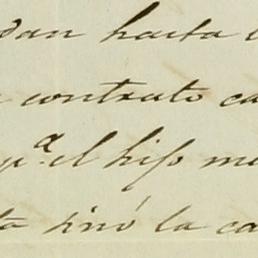 dan hasta
contrato ca
pª el hijo me
ta sinó la ca